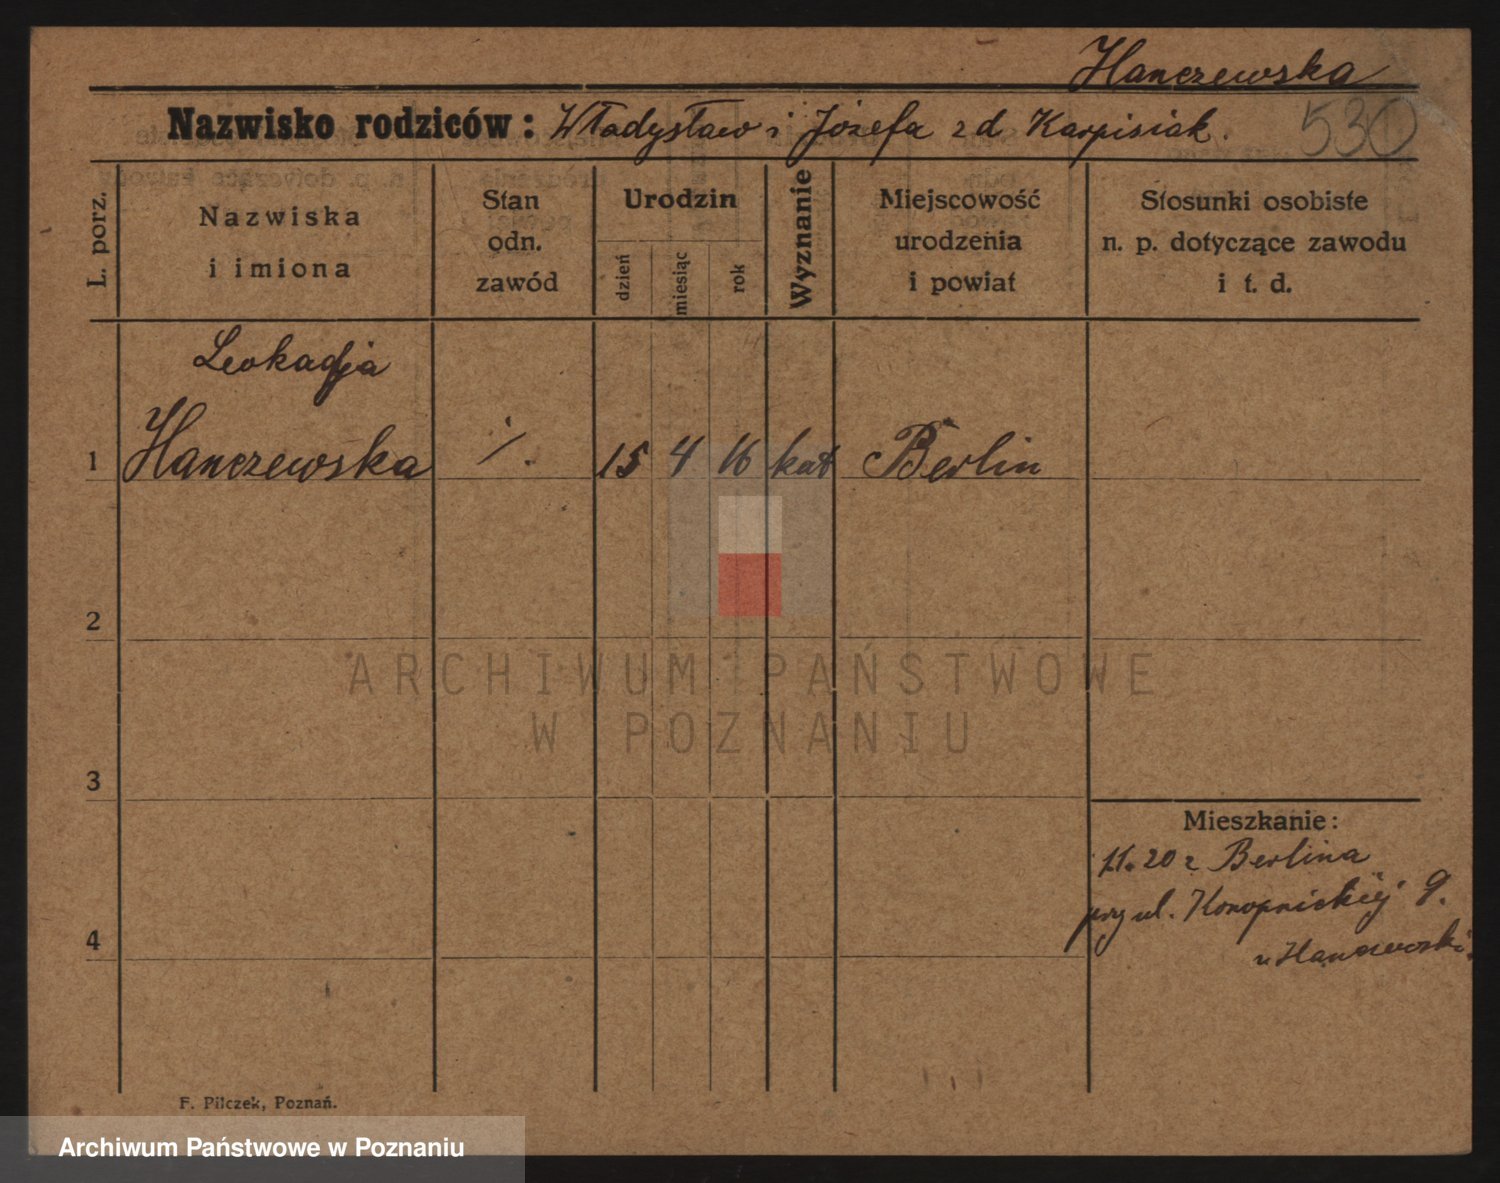 Hanczewska
Nazwisko rodziców: Władysław i Józefa z d Karpisiak.
530
L. porz.
Nazwiska
i imiona
Stan
odn.
zawód
Urodzin
dzień
miesiąc
rok
Wyznanie
Miejscowość
urodzenia
i powiat
Stosunki osobiste
n. p. dotyczące zawodu
i t. d.
Leokadja
1 Hanczewska ·/. 15 4 16 kat Berlin
2
ARCHIWUM PAŃSTWOWE
W POZNANIU
3
Mieszkanie:
20 z Berlina
przy ul. Konopnickiej 9.
u Hanczewski.
4
F. Pilczek, Poznań.
Archiwum Państwowe w Poznaniu